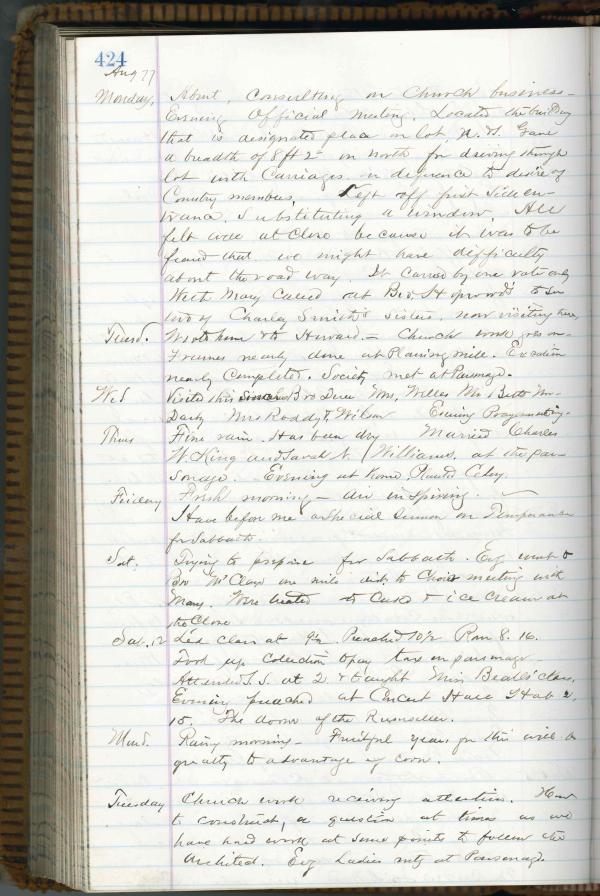 424
Aug 27
Monday, About, consulting on Church business –
Evening Official meeting. Located the building
that is designated place on lot. N. & S. Gave
a breadth of 8 ft 2 in north for driving through
lot with Carriages in deference to desire of
Country members, Left off first side en-
trance, substituting a window, All
felt well at close because it was to be
feared that we might have difficulty
about the road way. It carried by one vote only
With Mary called at Bro. Hopwood's to see
two of Charley Smith's Sisters, now visiting here,
Tuesd. Wrote home & to Howard – Church work goes on –
Frames nearly done at Planing mill. Excavation
nearly completed. Society met at Parsonage.
Wed Visited this Bro Mrs. Willes Mrs Betts Mr.
Mrs Roddy & Wilson Evening Prayermeeting.
Thus Fine rain. Has been dry Married Charles
W. King and Sarah N. Williams, at the par-
sonage. Evening at home, Planted Celery.
Friday Fresh morning – air inspiring.
I have before me a special sermon on Temperance
for Sabbath.
Sat. Trying to prepare for Sabbath. Evg went to
Bro McClays one mile dist. to Choir meeting with
Mary. Were treated to Cake & ice cream at
the Close
Sab., 2 Led class at 9½ Preached 10½ Rom 8. 16.
Took up Collection to pay tax on parsonage.
Attended S.S. at 2 & taught Miss Beall's class,
Evening preached at Concert Hall Hab 2,
15. The doom of the Rumseller.
Mond. Rainy morning – Fruitful year for this will be
greatly to advantage of corn.
Tuesday Church work receiving attention. How
to construct, a question at times as we
have hard work at some points to follow the
Architect. Evg Ladies mtg at Parsonage.